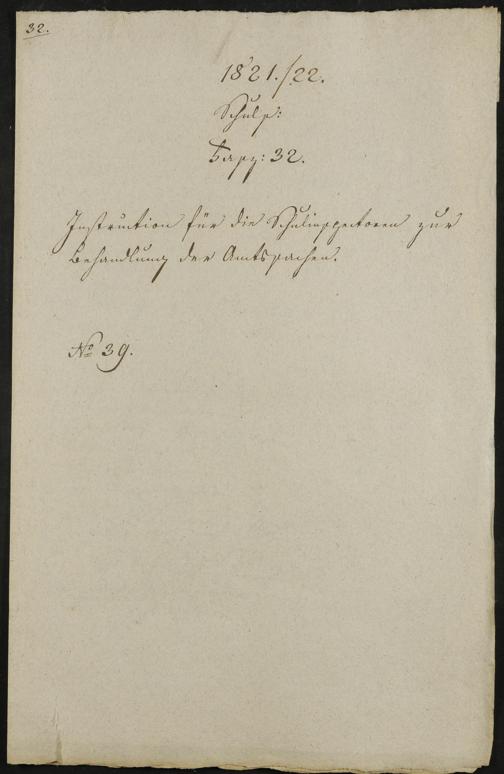 32.
1821./22.
Schulf:
Fasz: 32.
Instruction für die Schulinspectoren zur
Behandlung der Amtssachen.
No 39.